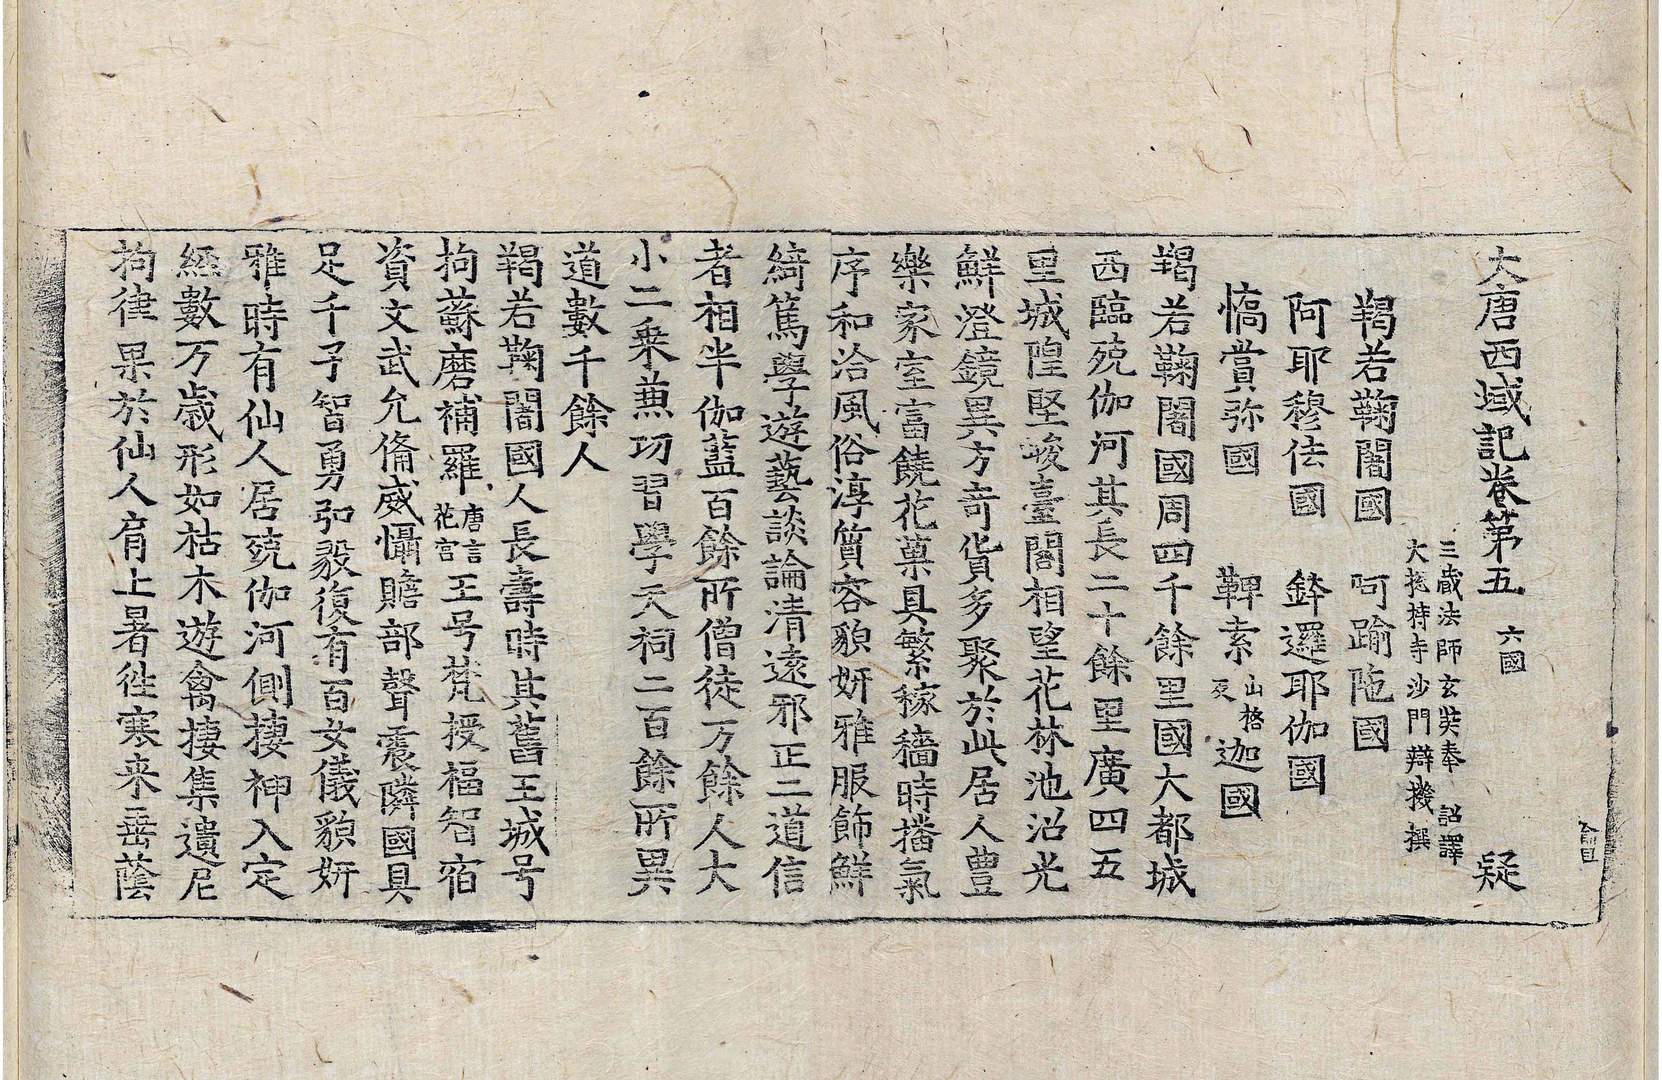 大唐西域記卷第五 六國 疑
三藏法師玄奘奉 詔譯
大揔持寺沙門辯機撰
羯若鞠闍國 呵踰陁國
阿耶穆佉國 鉢邏耶伽國
憍賞弥國 鞞索山格反迦國
羯若鞠闍國周四千餘里國大都城
西臨殑伽河其長二十餘里廣四五
里城隍堅峻臺閣相望花林池沼光
鮮澄鏡異方奇貨多聚於此居人豊
樂家室富饒花菓具繁稼穡時播氣
序和洽風俗淳質容貌妍雅服飾鮮
綺篤學遊藝談論清遠邪正二道信
者相半伽藍百餘所僧徒万餘人大
小二乗兼功習學天祠二百餘所異
道數千餘人
羯若鞠闍國人長壽時其舊王城号
拘蘇磨補羅唐言花宮王号梵授福智宿
資文武允俻威懾贍部聲震隣國具
足千子智勇弘毅復有百女儀貌妍
雅時有仙人居殑伽河側棲神入定
經數万歳形如枯木遊禽棲集遺尼
拘律果於仙人肩上暑徃寒来垂蔭